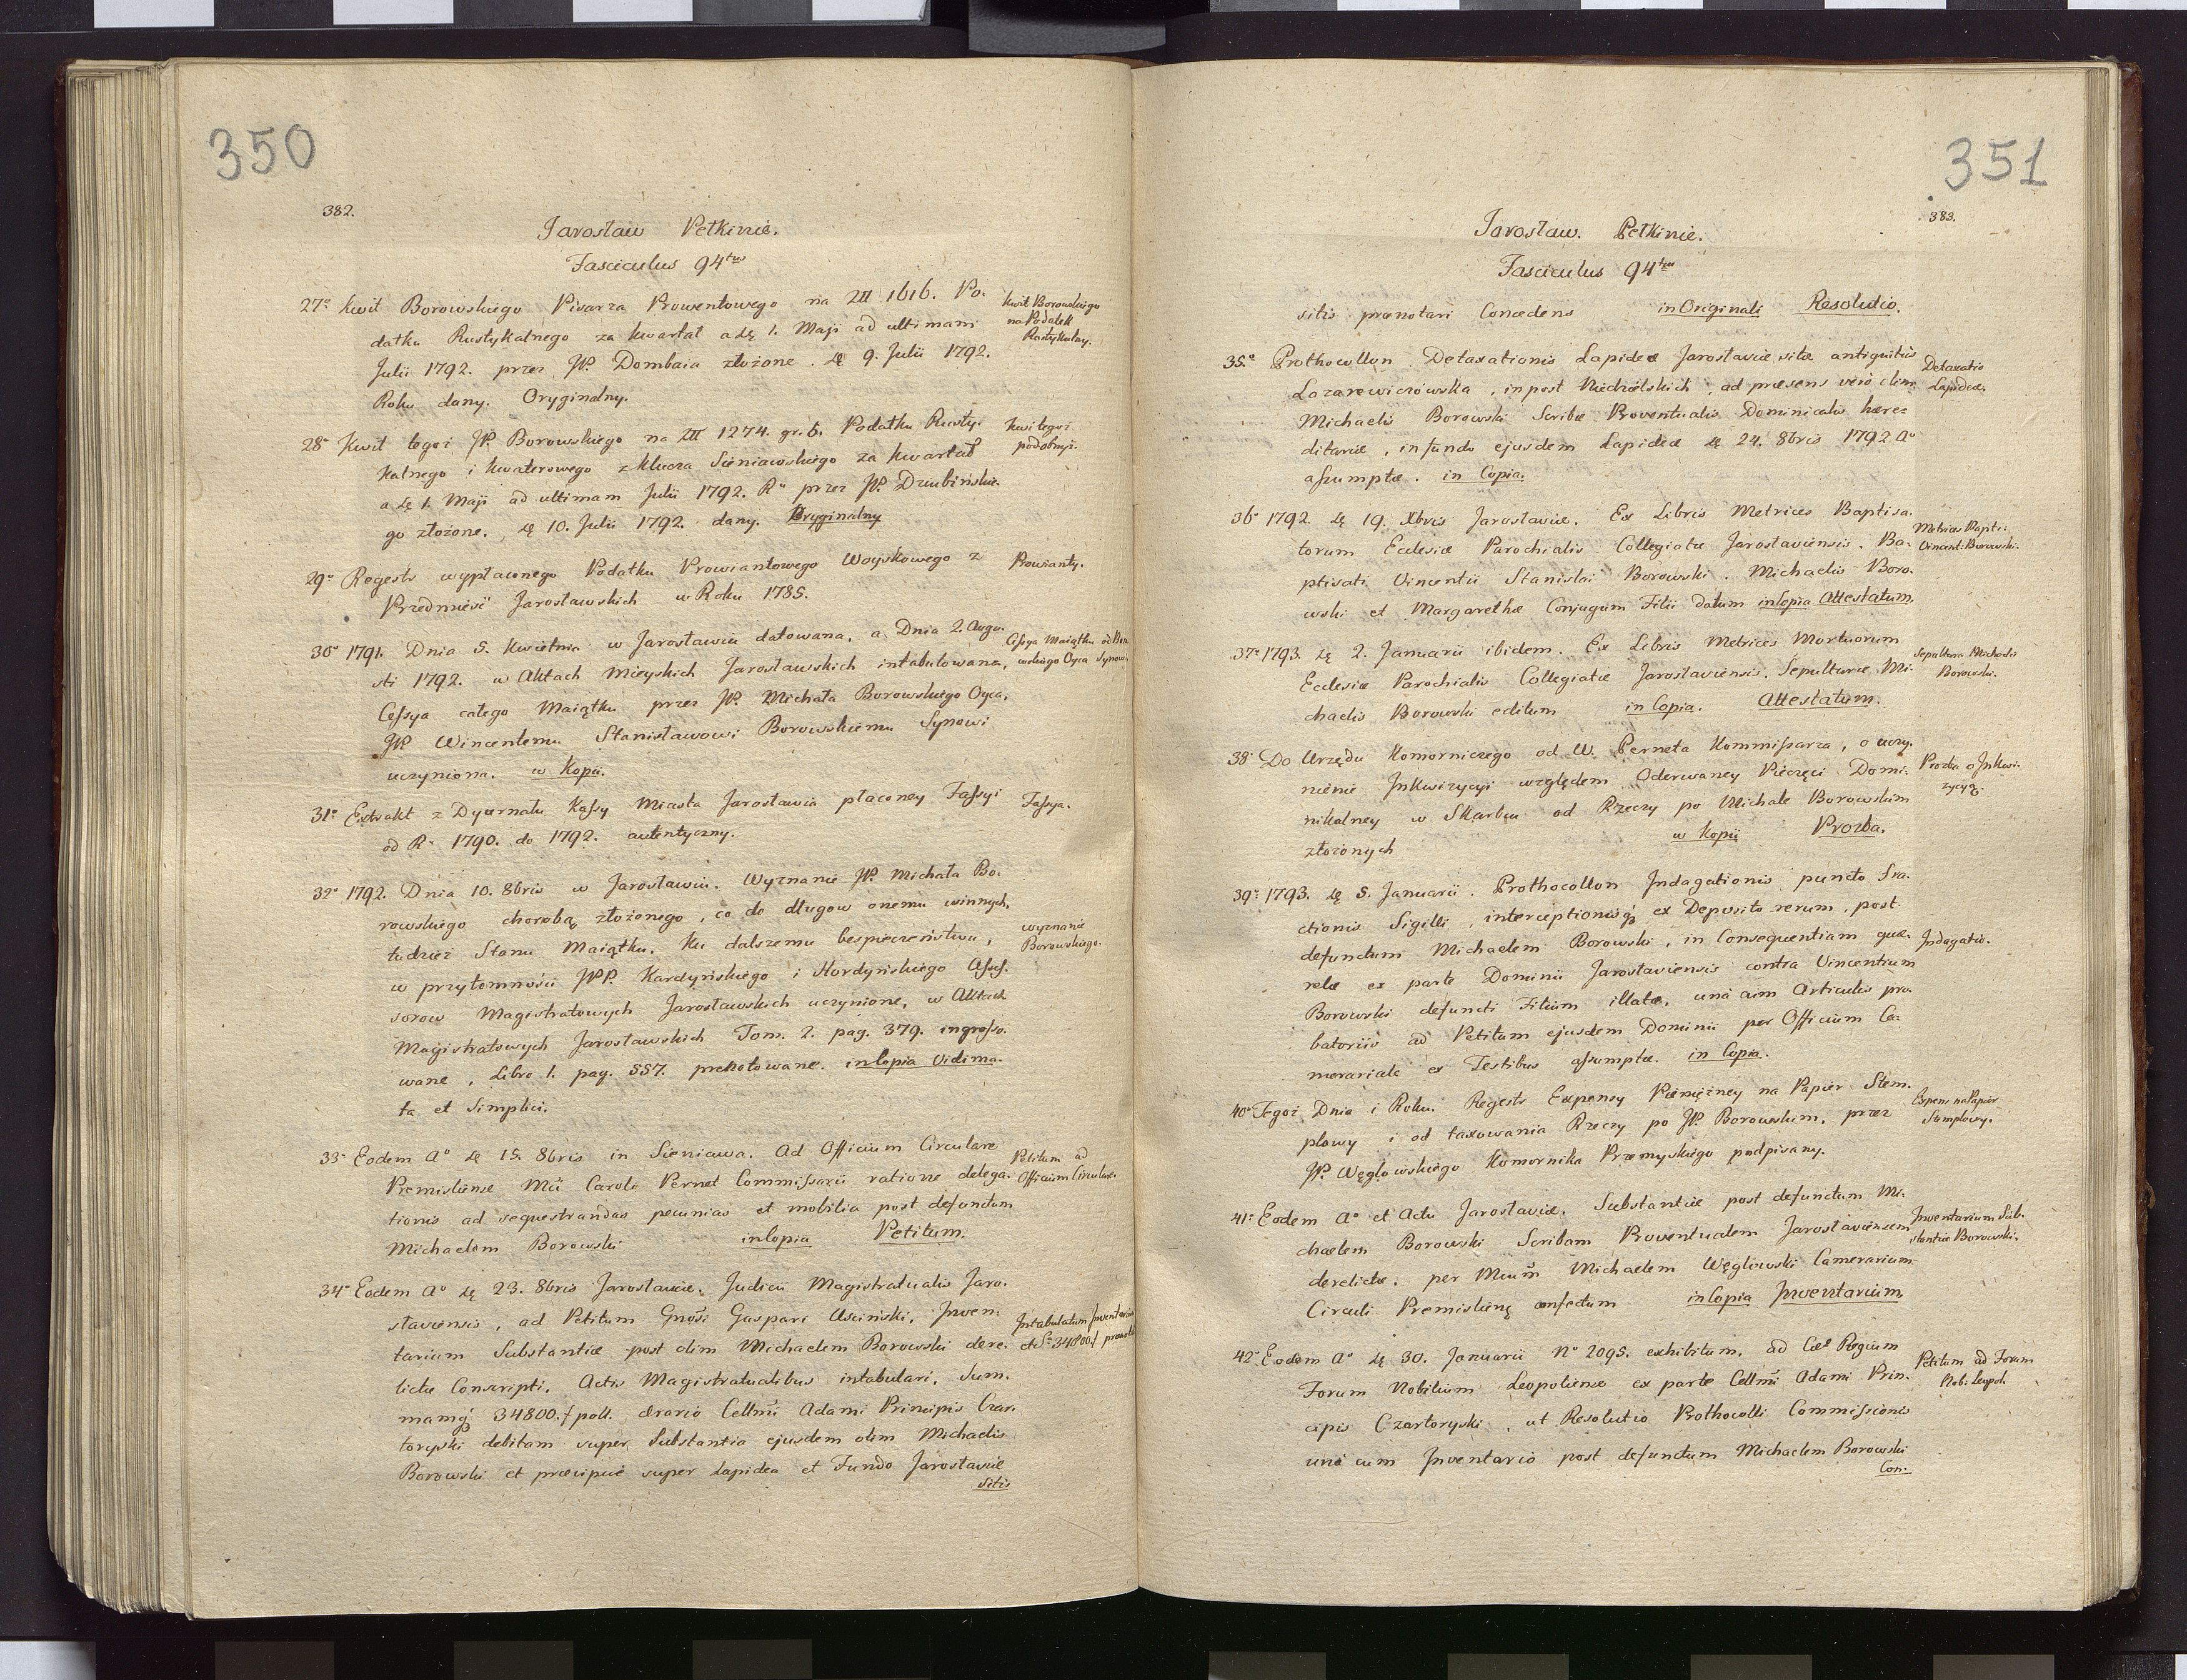 350
382.
Jarosław Pełkinie.
Fasciculus 94tus
27o Kwit Borowskiego Pisarza Prowentowego na 1616. Po-
datku Rustykalnego za kwartał a 1. Maji ad ultimam
Julii 1792. przez JP. Dombała złożone. 9. Julii 1792.
Roku dany. Oryginalny.
Kwit Borowskiego
na Podatek
Rustykalny.
28o Kwit tegoż JP. Borowskiego na 1274. gr. 6. Podatku Rusty-
kalnego i kwaterowego z klucza Sieniawskiego za kwartał
a 1. Maji ad ultimam Julii 1792. Ru przez JP. Dziubińskie-
go złożone., 10. Julii 1792. dany. Oryginalny
Kwit tegoż
podobnyż.
29o Regestr wypłaconego Podatku Prowiantowego Woyskowego z
Przedmieść Jarosławskich w Roku 1785.
Prowianty.
30o 1791. Dnia 5. Kwietnia w Jarosławiu datowana, a Dnia 2. Augu-
sti 1792. w Aktach Mieyskich Jarosławskich intabulowana,
Cessya całego Maiątku przez JP. Michała Borowskiego Oyca,
JP. Wincentemu Stanisławowi Borowskiemu Synowi
uczyniona. w Kopii.
Cessya Maiątku od Boro
wskiego Oyca Synowi
31o Extrakt z Dyurnału Kassy Miasta Jarosławia płaconey Fassyi
od Ru 1790. do 1792. autentyczny.
Fassya.
32o 1792. Dnia 10. 8bris w Jarosławiu. Wyznanie JP. Michała Bo-
rowskiego chorobą złożonego, co do długow onemu winnych,
tudzież Stanu Maiątku, ku dalszemu bespieczeństwu,
w przytomności JPP. Kardyńskiego i Hordyńskiego Asses-
sorow Magistratowych Jarosławskich uczynione, w Aktach
Magistratowych Jarosławskich Tom. 2. pag. 379. ingrosso-
wane, Libro 1. pag. 557. prenotowane. in Copia Vidima-
ta et Simplici.
wyznanie
Borowskiego.
33o Eodem Ao 15. 8bris in Sieniawa. Ad Officium Circulare
Premisliense Mci Caroli Pernet Commissarii ratione delega-
tionis ad sequestrandas pecunias et mobilia post defunctum
Michaelem Borowski in Copia Petitum.
Petitum ad
Officium Circulare.
34o Eodem Ao 23. 8bris Jaroslaviæ, Judicii Magistratualis Jaro-
slaviensis, ad Petitum Gnosi Gaspari Usciński, Inven-
tarium Substantiæ post olim Michaelem Borowski dere-
lictæ Conscripti, Actis Magistratualibus intabulari, Sum-
mamq 34800. f poll. ærario Cellmi Adami Principis Czar-
toryski debitam super Substantia ejusdem olim Michaelis
Borowski et præcipue super Lapidea et Fundo Jaroslaviæ
sitis
Intabulatum Inventarium
et Sa 34800 f prænot
351
383.
Jarosław. Pełkinie.
Fasciculus 94tus
sitis prænotari Concedens in Originali Resolutio.
35o Prothocollon Detaxationis Lapideæ Jaroslaviæ sitæ antiquitus
Lazarewiczówska, in post Niedzielskich, ad præsens vero olim
Michaelis Borowski Scribæ Proventualis Dominicalis hære-
ditariæ, in fundo ejusdem Lapideæ 24. 8bris 1792 Ao
assumptæ. in Copia.
Detaxatio
Lapideæ.
36o 1792 19. Xbris Jaroslaviæ. Ex Libris Metrices Baptisa-
torum Ecclesiæ Parochialis Collegiatæ Jaroslaviensis. Ba-
ptisati Vincentii Stanislai Borowski. Michaelis Boro-
wski et Margarethæ Conjugum Filii datum in Copia Attestatum.
Metrices Bapti:
Vincent: Borowski.
37o 1793. 2. Januarii ibidem. Ex Libris Metrices Mortuorum
Ecclesiæ Parochialis Collegiatæ Jaroslaviensis, Sepulturæ Mi-
chaelis Borowski editum in Copia. Attestatum.
Sepultura Michaelis
Borowski.
38o Do Urzędu Komorniczego od W. Perneta Kommissarza, o uczy-
nienie Inkwizycyi względem Oderwaney Pieczęci Domi-
nikalney w Skarbcu od Rzeczy po Michale Borowskim
złożonych w Kopii Prozba.
Prozba o Inkwi-
zycyą.
39o 1793. 5. Januarii. Prothocollon Indagationis puncto fra-
ctionis Sigilli, interceptionisq ex Deposito rerum, post
defunctum Michaelem Borowski, in Consequentiam que-
relæ ex parte Dominii Jaroslaviensis contra Vincentium
Borowski defuncti Filium illatæ, una cum Articulis pro-
batoriis ad Petitum ejusdem Dominii per Officium Ca-
merariale ex Testibus assumptæ. in Copia.
Indagatio.
40o Tegoż Dnia i Roku. Regestr Expensy Pieniężney na Papier Stem-
plowy i od taxowania Rzeczy po JP. Borowskim, przez
JP. Węglowskiego Komornika Przemyskiego podpisany.
Expens na Papier
Stemplowy.
41o Eodem Ao et Actu Jaroslaviæ. Substantiæ post defunctum Mi-
chaelem Borowski Scribam Proventualem Jaroslaviensem
derelictæ. per Mcum Michaelem Węglowski Camerarium
Circuli Premislienę confectum in Copia Inventarium
Inventarium Sub-
stantiæ Borowski.
42o Eodem Ao 30. Januarii No 2095. exhibitum, ad Cæs Regium
Forum Nobilium Leopoliense ex parte Cellmi Adami Prin-
cipis Czartoryski, ut Resolutio Prothocolli Commissionis
una cum Inventario post defunctum Michaelem Borowski
Con-
Petitum ad Forum
Nob: Leopol.